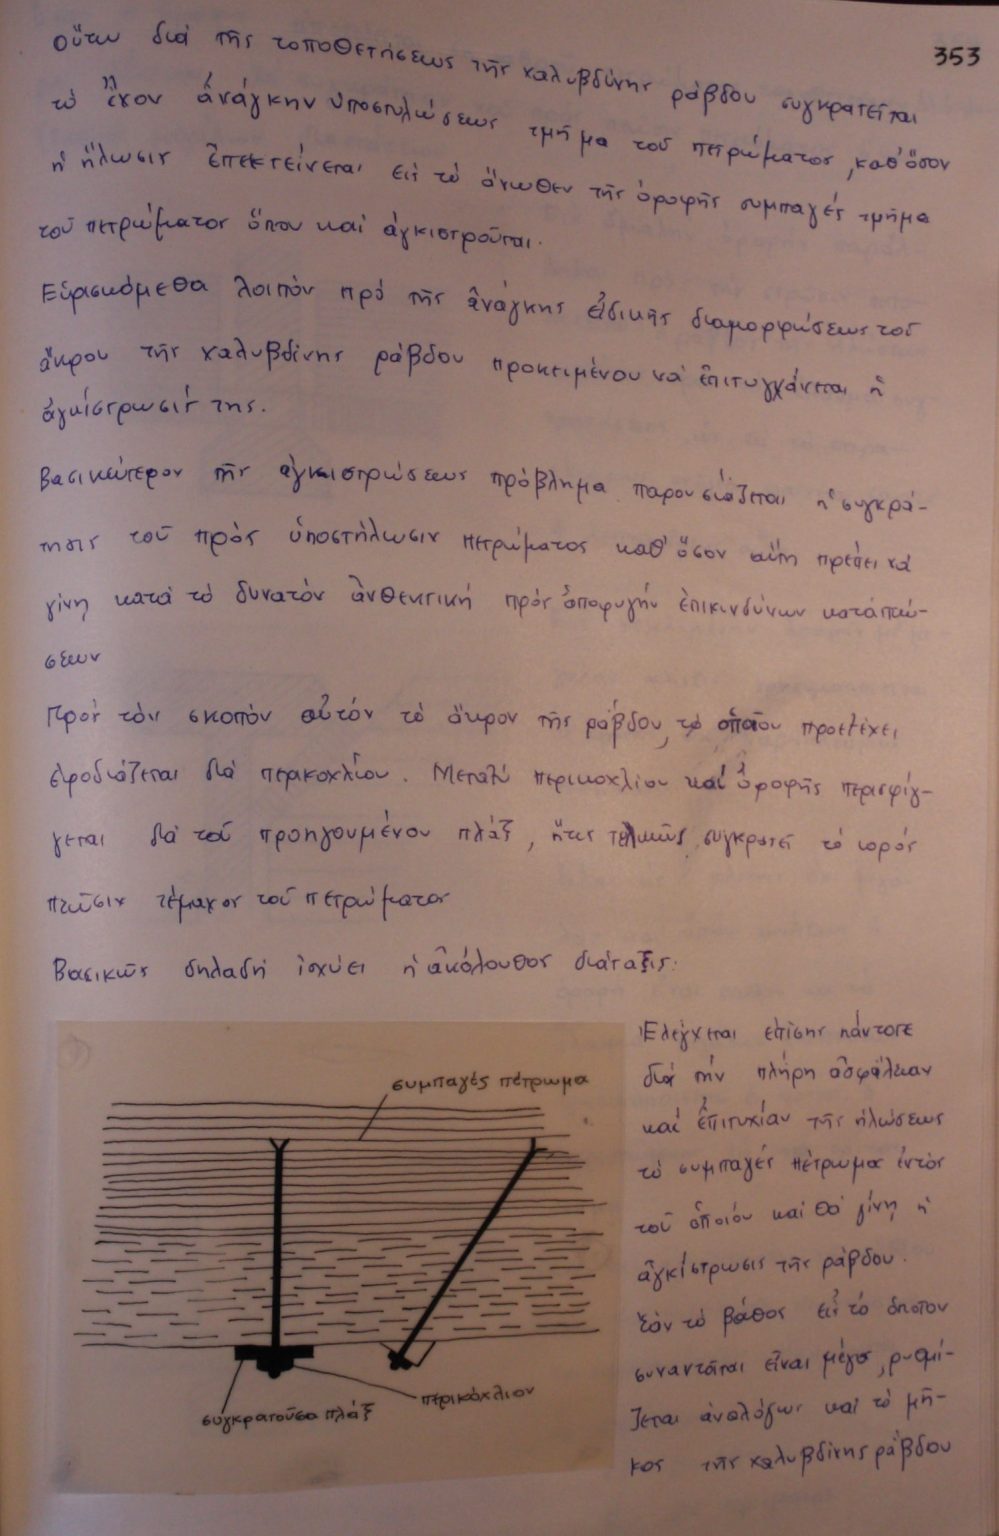 353
Οὕτω διά τῆς τοποθετήσεως τῆς χαλυβδίνης ράβδου συγκρατεῖται
τό ἔχον ἀνάγκην ὑποστυλώσεως τμῆμα τοῦ πετρώματος, καθ' ὅσον
ἡ ἥλωσις ἐπεκτείνεται εἰς τό ἄνωθεν τῆς ὀροφῆς συμπαγές τμῆμα
τοῦ πετρώματος ὅπου καί ἀγκιστροῦται.
Εὑρισκόμεθα λοιπόν πρό τῆς ἀνάγκης εἰδικῆς διαμορφώσεως τοῦ
ἄκρου τῆς χαλυβδίνης ράβδου προκειμένου νά ἐπιτυγχάνεται ἡ
ἀγκίστρωσίς της.
Βασικώτερον τῆς ἀγκιστρώσεως πρόβλημα παρουσιάζεται ἡ συγκρά-
τησις τοῦ πρός ὑποστήλωσιν πετρώματος καθ' ὅσον αὕτη πρέπει νά
γίνῃ κατά τό δυνατόν ἀνθεκτική πρός ἀποφυγήν ἐπικινδύνων καταπτώ-
σεων
Πρός τόν σκοπόν αὐτόν τό ἄκρον τῆς ράβδου, τό ὁποῖον προεξέχει
ἐφοδιάζεται διά περικοχλίου. Μεταξύ περικοχλίου καί ὀροφῆς περισφίγ-
γεται διά τοῦ προηγουμένου πλάξ, ἥτις τελικῶς συγκρατεῖ τό πρός
πτῶσιν τέμαχος τοῦ πετρώματος
Βασικῶς δηλαδή ἰσχύει ἡ ἀκόλουθος διάταξις:
συμπαγές πέτρωμα
περικόχλιον
συγκρατοῦσα πλάξ
Ἐλέγχεται ἐπίσης πάντοτε
διά τήν πλήρη ἀσφάλειαν
καί ἐπιτυχίαν τῆς ἡλώσεως
τό συμπαγές πέτρωμα ἐντός
τοῦ ὁποίου καί θά γίνῃ ἡ
ἀγκίστρωσις τῆς ράβδου.
Ἐάν τό βάθος εἰς τό ὁποῖον
συναντᾶται εἶναι μέγα, ρυθμί-
ζεται ἀναλόγως καί τό μῆ-
κος τῆς χαλυβδίνης ράβδου